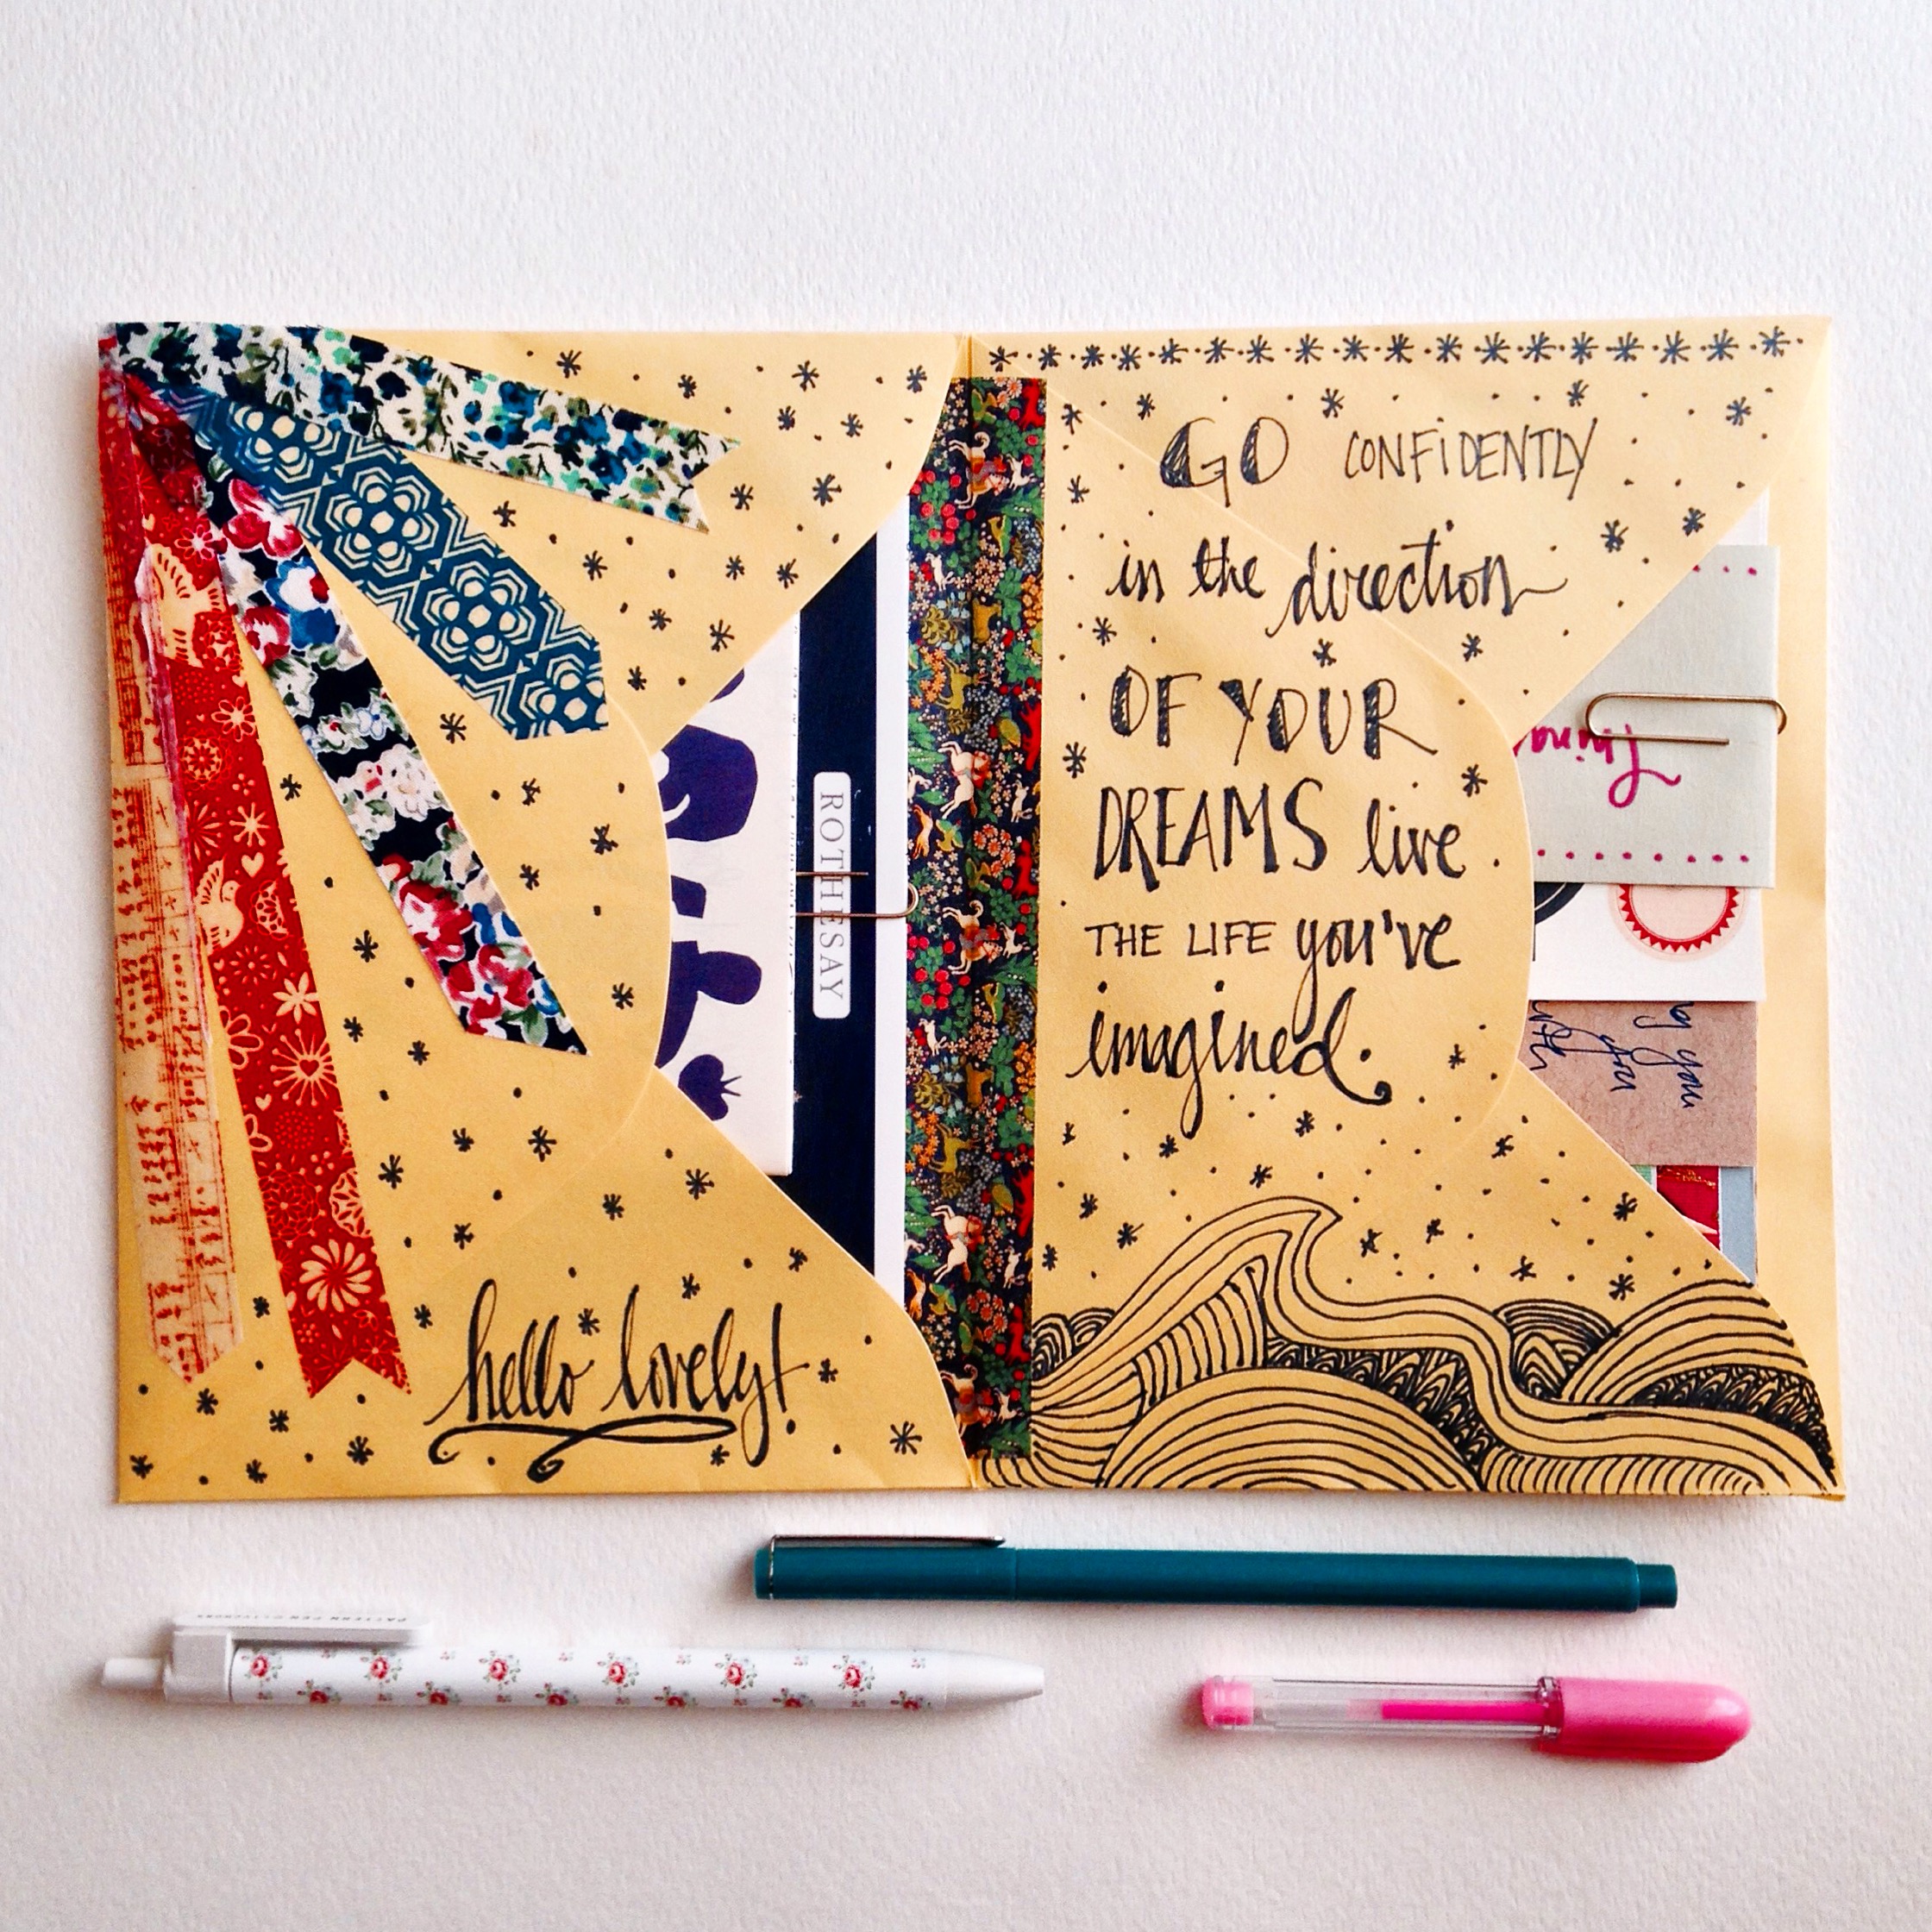 GO CONFiDENTLY
in the direction
OF YOUR
DREAMS live
THE LIFE you've
imagined.
hello lovely!
ROTHESAY
you
you
with